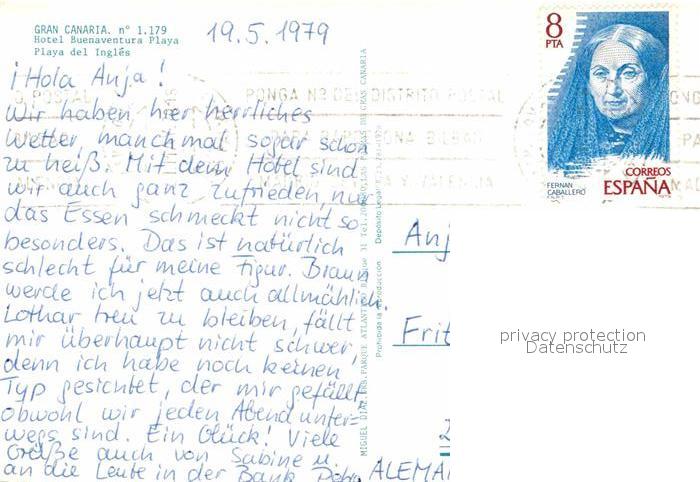 GRAN CANARIA. nº 1.179
Hotel Buenaventura Playa
Playa del Inglés
19.5.1979
¡Hola Anja!
Wir haben hier herrliches
Wetter, manchmal sogar schon
zu heiß. Mit dem Hotel sind
wir auch ganz zufrieden, nur
das Essen schmeckt nicht so
besonders. Das ist natürlich
schlecht für meine Figur. Braun
werde ich jetzt auch allmählich.
Lothar treu zu bleiben, fällt
mir überhaupt nicht schwer,
denn ich habe noch keinen
Typ gesichtet, der mir gefällt,
obwohl wir jeden Abend unter-
wegs sind. Ein Glück! Viele
Grüße auch von Sabine u.
an die Leute in der Bank
PONGA Nº DEL DISTRITO POSTAL
PARA BARCELONA BILBAO
Y VALENCIA
Prohibida la reproducción
8
PTA
FERNAN
CABALLERO
CORREOS
ESPAÑA
Anj
Frit
privacy protection
Datenschutz
ALEMA